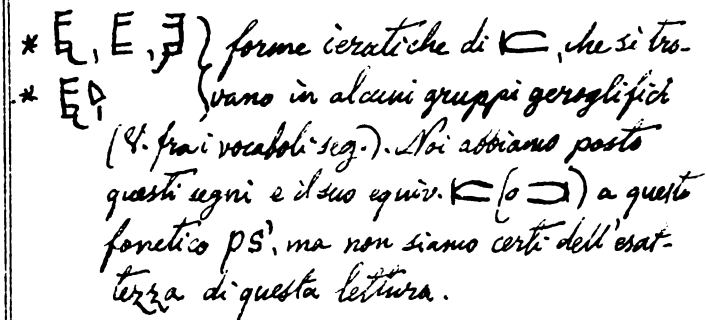 forme ieratiche di , che si tro-
vano in alcuni gruppi geroglifici
(V. fra i vocaboli seg.). Noi abbiamo posto
questi segni e il suo equiv. (o ) a questo
fonetico ps', ma non siamo certi dell'esat-
tezza di questa lettura.